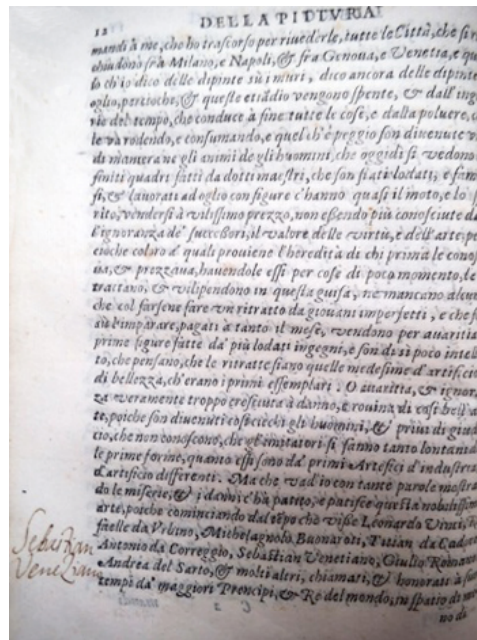 12 DELLA PITTVRA
mandi à me, che ho trascorso per riuederle, tutte le Città, che si r
chiudono frà Milano, e Napoli, & frà Genoua, e Venetia, e qu
lo ch'io dico delle dipinte sù i muri, dico ancora delle dipinte
oglio, percioche, & queste etiādio vengono spente, & dall'ing
rie del tempo, che conduce à fine tutte le cose, e dalla poluere, c
le và rodendo, e consumando, e quel ch'è peggio son diuenute v
di maniera ne gli animi de gli huomini, che oggidì si vedono
finiti quadri fatti da dotti maestri, che son stati lodati, e fam
si, & lauorati ad oglio con figure c'hanno quasi il moto, e lo
rito, vendersi à vilissimo prezzo, non essendo più conosciute da
l'ignoranza de' successori, il valore delle virtù, e dell'arte, pe
cioche coloro a' quali prouiene l'heredità di chi prima le conos
ua, & prezzaua, hauendole essi per cose di poco momento, le
tractano, & vilipendono in questa guisa, ne mancano alcun
che col farsene fare vn ritratto da giouani imperfetti, e che s
sù l'imparare, pagati à tanto il mese, vendono per auaritia
prime figure fatte da' più lodati ingegni, e son di sì poco intel
to, che pensano, che le ritratte siano quelle medesime d'artificio
di bellezza, ch'erano i primi essemplari. O auaritia, & ignor
za veramente troppo cresciuta à danno, e rouina di così bell'a
te, poiche son diuenuti così ciechi gli huomini, & priui di giud
cio, che non conoscono, che gl'imitatori si fanno tanto lontani d
le prime forme, quanto essi sono da' primi Artefici d'industria
d'artificio differenti. Ma che vad'io con tante parole mostra
do le miserie, & i danni c'hà patito, e patisce questa nobilissim
arte, poiche cominciando dal tēpo che visse Leonardo Vinci, R
faelle da Vrbino, Michelagnolo Buonaroti, Titian da Cador
Antonio da Correggio, Sebastian Venetiano, Giulio Romano
Andrea del Sarto, & molti altri, chiamati, & honorati à suo
tempi da' maggiori Prencipi, & Rè del mondo, in spatio di me
no da
Sebastian
Veneziano